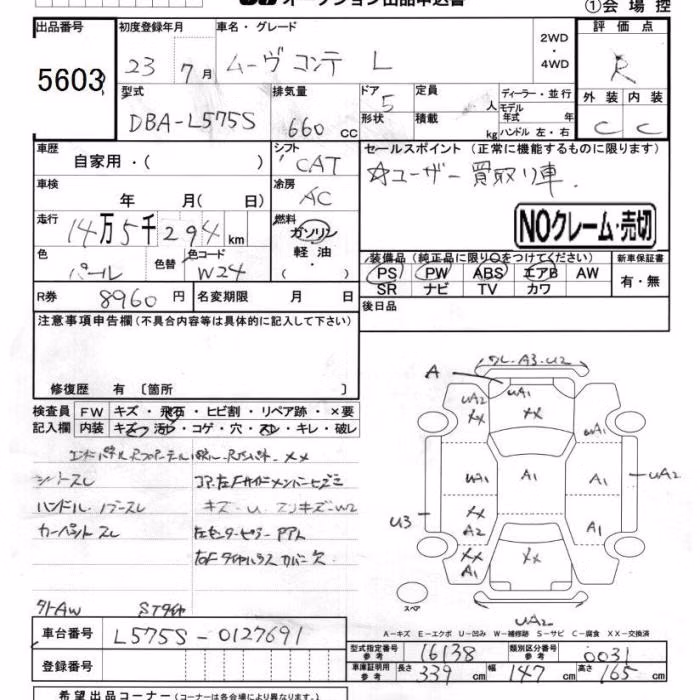 オークション出品申込書
①会場控
出品番号 初度登録年月 車名・グレード 2WD・4WD 評価点
5603 23 7月 ムーヴ コンテ L R
型式 排気量 ドア 定員 ディーラー・並行 外装 内装
DBA-L575S 660cc 5 人 モデル年式 年 C C
形状 積載 kg ハンドル 左・右
車歴 シフト セールスポイント (正常に機能するものに限ります)
自家用・( ) CAT ☆ユーザー買取り車.
車検 冷房
年 月( 日) AC
NOクレーム・売切
走行 燃料
14万5千294km ガソリン
軽油
色 色替 色コード 装備品(純正品に限り○をつけてください) 新車保証書
パール W24 PS PW ABS エアB AW 有・無
SR ナビ TV カワ
R券 8960円 名変期限 月 日 後日品
注意事項申告欄(不具合内容等は具体的に記入して下さい)
修復歴 有 〔箇所 〕
検査員 FW キズ・飛石・ヒビ割・リペア跡・×要
記入欄 内装 キズ・汚レ・コゲ・穴・スレ・キレ・破レ
シートスレ
ハンドル・ノブースレ キズ-U. W2
カーペットスレ
外AW STタイヤ
A
A1
UA2
XX
UA1
XX
UA2
UA1
UA1
A1
A1
UA2
U3
XX
A2
A1
XX
A1
XX
スペア
UA2
A-キズ E-エクボ U-凹み W-補修跡 S-サビ C-腐食 XX-交換済
車台番号 L575S-0127691
型式指定番号 参考 16138 類別区分番号 参考 0031
登録番号
車庫証明用 参考 長さ 339cm 幅 147cm 高さ 165cm
希望出品コーナー(コーナーは各会場により異なります。)